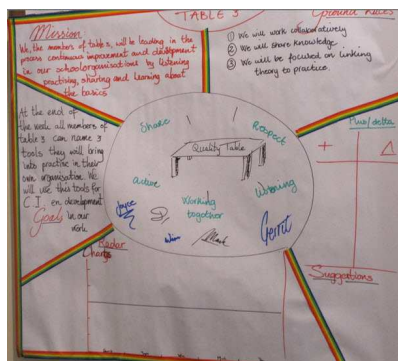 TABLE 3
Mission
We, the members of table 3, will be leading in the
process continuous improvement and development
in our school organisations by listening
practising, sharing and learning about
the basics
Ground Rules
① We will work collaboratively
② We will share knowledge
③ We will be focused on linking
theory to practice.
At the end of
the week all members of
table 3 can name 3
tools they will bring
into practise in their
own organisation. We
will use this tools for
C.I. en development
Goals in our
work
Share
Respect
Quality Table
active
Winning
Working
together
Joyce
Wim
Mark
Gerrit
Plus/delta
+ Δ
Radar
Charts
Suggestions